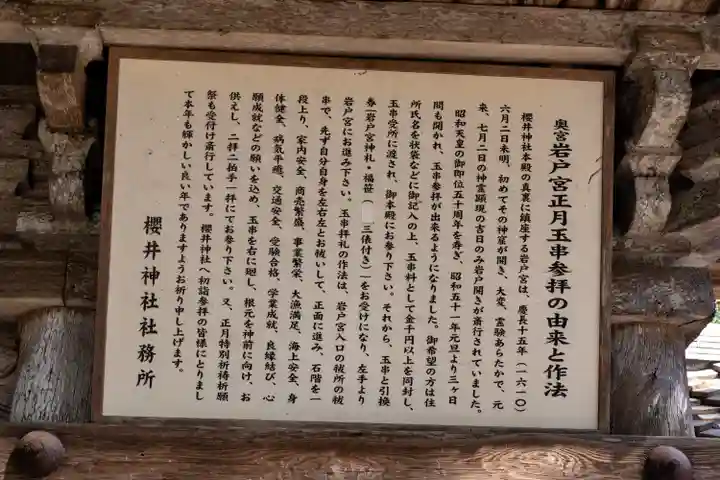 奥宮岩戸宮正月玉串参拝の由来と作法
櫻井神社本殿の真裏に鎮座する岩戸宮は、慶長十五年(一六一〇)
六月二日未明、初めてその神窟が開き、大変、霊験あらたかで、元
来、七月二日の神霊顕現の吉日のみ岩戸開きが斎行されていました。
昭和天皇の御即位五十周年を寿ぎ、昭和五十一年元旦より三ヶ日
間も開かれ、玉串参拝が出来るようになりました。御希望の方は住
所氏名を状袋などに御記入の上、玉串料として金千円以上を同封し、
玉串受所に渡され、御本殿にお参り下さい。それから、玉串と引換
券(岩戸宮神札・福笹(三俵付き))をお受けになり、左手より
岩戸宮にお進み下さい。玉串拝礼の作法は、岩戸宮入口の祓所の祓
串で、先ず自分自身を左右左とお祓いして、正面に進み、石階を一
段上り、家内安全、商売繁盛、事業繁栄、大漁満足、海上安全、身
体健全、病気平癒、交通安全、受験合格、学業成就、良縁結び、心
願成就などの願いを込め、玉串を右に廻し、根元を神前に向け、お
供えし、二拝二拍手一拝にてお参り下さい。又、正月特別祈祷祈願
祭も受付け斎行しています。櫻井神社へ初詣参拝の皆様にとりまし
て本年も輝かしい良い年でありますようお祈り申し上げます。
櫻井神社社務所